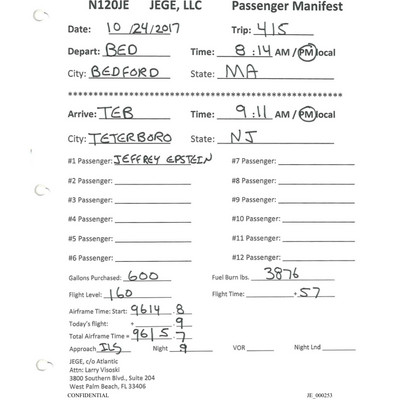 N120JE JEGE, LLC Passenger Manifest
Date: 10/24/2017 Trip: 415
Depart: BED Time: 8:14 AM / PM local
City: BEDFORD State: MA
Arrive: TEB Time: 9:11 AM / PM local
City: TETERBORO State: NJ
#1 Passenger: JEFFREY EPSTEIN #7 Passenger:
#2 Passenger: #8 Passenger:
#3 Passenger: #9 Passenger:
#4 Passenger: #10 Passenger:
#5 Passenger: #11 Passenger:
#6 Passenger: #12 Passenger:
Gallons Purchased: 600 Fuel Burn lbs. 3876
Flight Level: 160 Flight Time: +57
Airframe Time: Start: 9614.8
Today's flight: + .9
Total Airframe Time = 9615.7
Approach ILS Night .9 VOR Night Lnd
JEGE, c/o Atlantic
Attn: Larry Visoski
3800 Southern Blvd., Suite 204
West Palm Beach, FL 33406
CONFIDENTIAL JE_000253